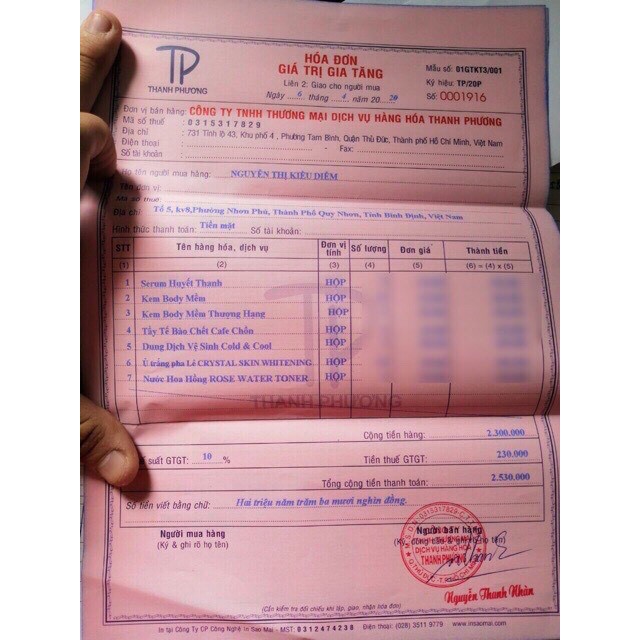 TP
THANH PHƯƠNG
HÓA ĐƠN
GIÁ TRỊ GIA TĂNG
Liên 2: Giao cho người mua
Ngày 6 tháng 4 năm 2020
Mẫu số: 01GTKT3/001
Ký hiệu: TP/20P
Số: 0001916
Đơn vị bán hàng: CÔNG TY TNHH THƯƠNG MẠI DỊCH VỤ HÀNG HÓA THANH PHƯƠNG
Mã số thuế : 0315317829
Địa chỉ : 731 Tỉnh lộ 43, Khu phố 4, Phường Tam Bình, Quận Thủ Đức, Thành phố Hồ Chí Minh, Việt Nam
Điện thoại : - Fax:
Số tài khoản :
Họ tên người mua hàng: NGUYỄN THỊ KIỀU DIỄM
Tên đơn vị:
Mã số thuế:
Địa chỉ: Tổ 5, kv8, Phường Nhơn Phú, Thành Phố Quy Nhơn, Tỉnh Bình Định, Việt Nam
Hình thức thanh toán: Tiền mặt Số tài khoản:
STT Tên hàng hóa, dịch vụ Đơn vị tính Số lượng Đơn giá Thành tiền
(1) (2) (3) (4) (5) (6) = (4) x (5)
1 Serum Huyết Thanh HỘP
2 Kem Body Mềm HỘP
3 Kem Body Mềm Thượng Hạng HỘP
4 Tẩy Tế Bào Chết Cafe Chồn HỘP
5 Dung Dịch Vệ Sinh Cold & Cool HỘP
6 Ủ trắng pha Lê CRYSTAL SKIN WHITENING HỘP
7 Nước Hoa Hồng ROSE WATER TONER HỘP
TP
THANH PHƯƠNG
Cộng tiền hàng: 2.300.000
suất GTGT: 10 % Tiền thuế GTGT: 230.000
Tổng cộng tiền thanh toán: 2.530.000
Số tiền viết bằng chữ: Hai triệu năm trăm ba mươi nghìn đồng.
Người mua hàng Người bán hàng
(Ký & ghi rõ họ tên)
THANH PHƯƠNG
Nguyễn Thanh Nhân
(Cần kiểm tra đối chiếu khi lập, giao, nhận hóa đơn)
In tại Công Ty CP Công Nghệ In Sao Mai - MST: 0312474238 Điện thoại: (028) 3511 9779 www.insaomai.com